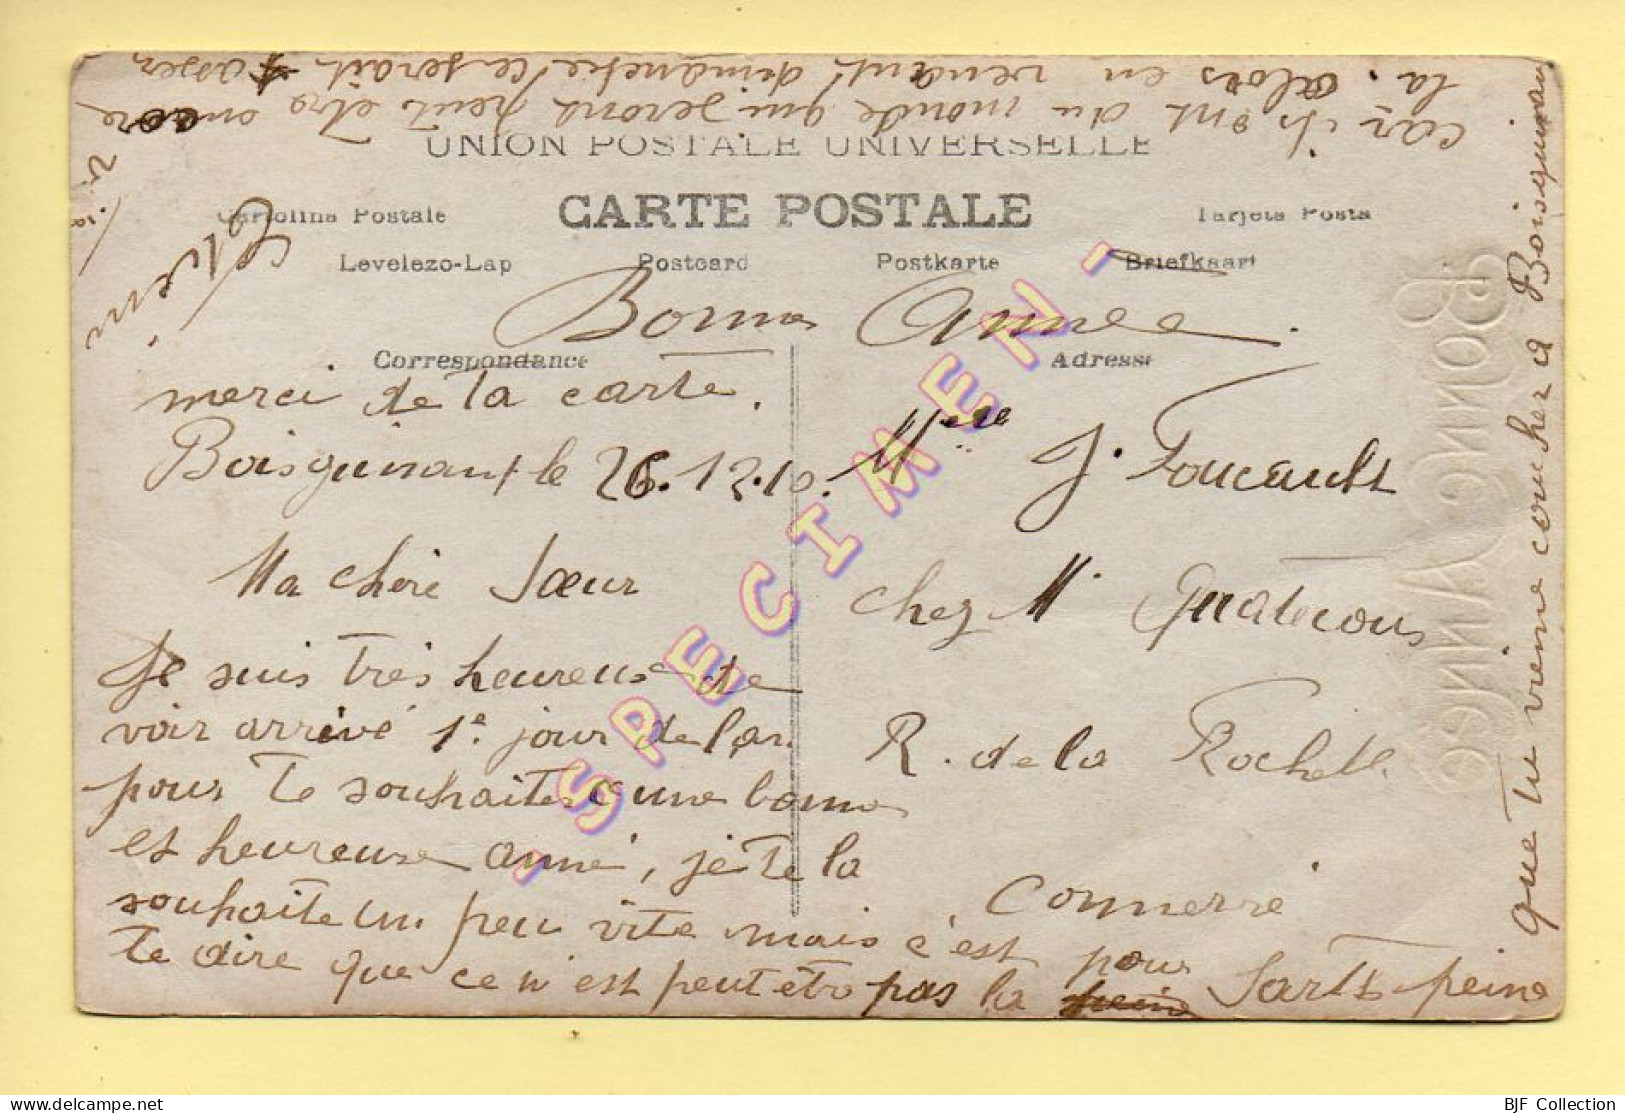 UNION POSTALE UNIVERSELLE
Cartolina Postale CARTE POSTALE Tarjeta Posta
Levelezo-Lap Postcard Postkarte Briefkaart
Bonne Année.
Correspondance
merci de la carte.
Boisguinant le 26.12.10.
Ma chère Sœur
Je suis très heureuse de
voir arrivé 1e jour de l'an
pour te souhaiter une bonne
et heureuse anné, je te la
souhaite un peu vite mais c'est pour
te dire que ce n'est peut être pas la peine
que tu vienne coucher a Boisguinant
car ils ont du monde qui serons peut être encore
la. alors en venant dimanche ce serait assez
Adresse
Mme J. Foucault
chez M.
R. de la Rochelle
Connerré
Sarthe
Bonne Année
- SPECIMEN -
BJF Collection